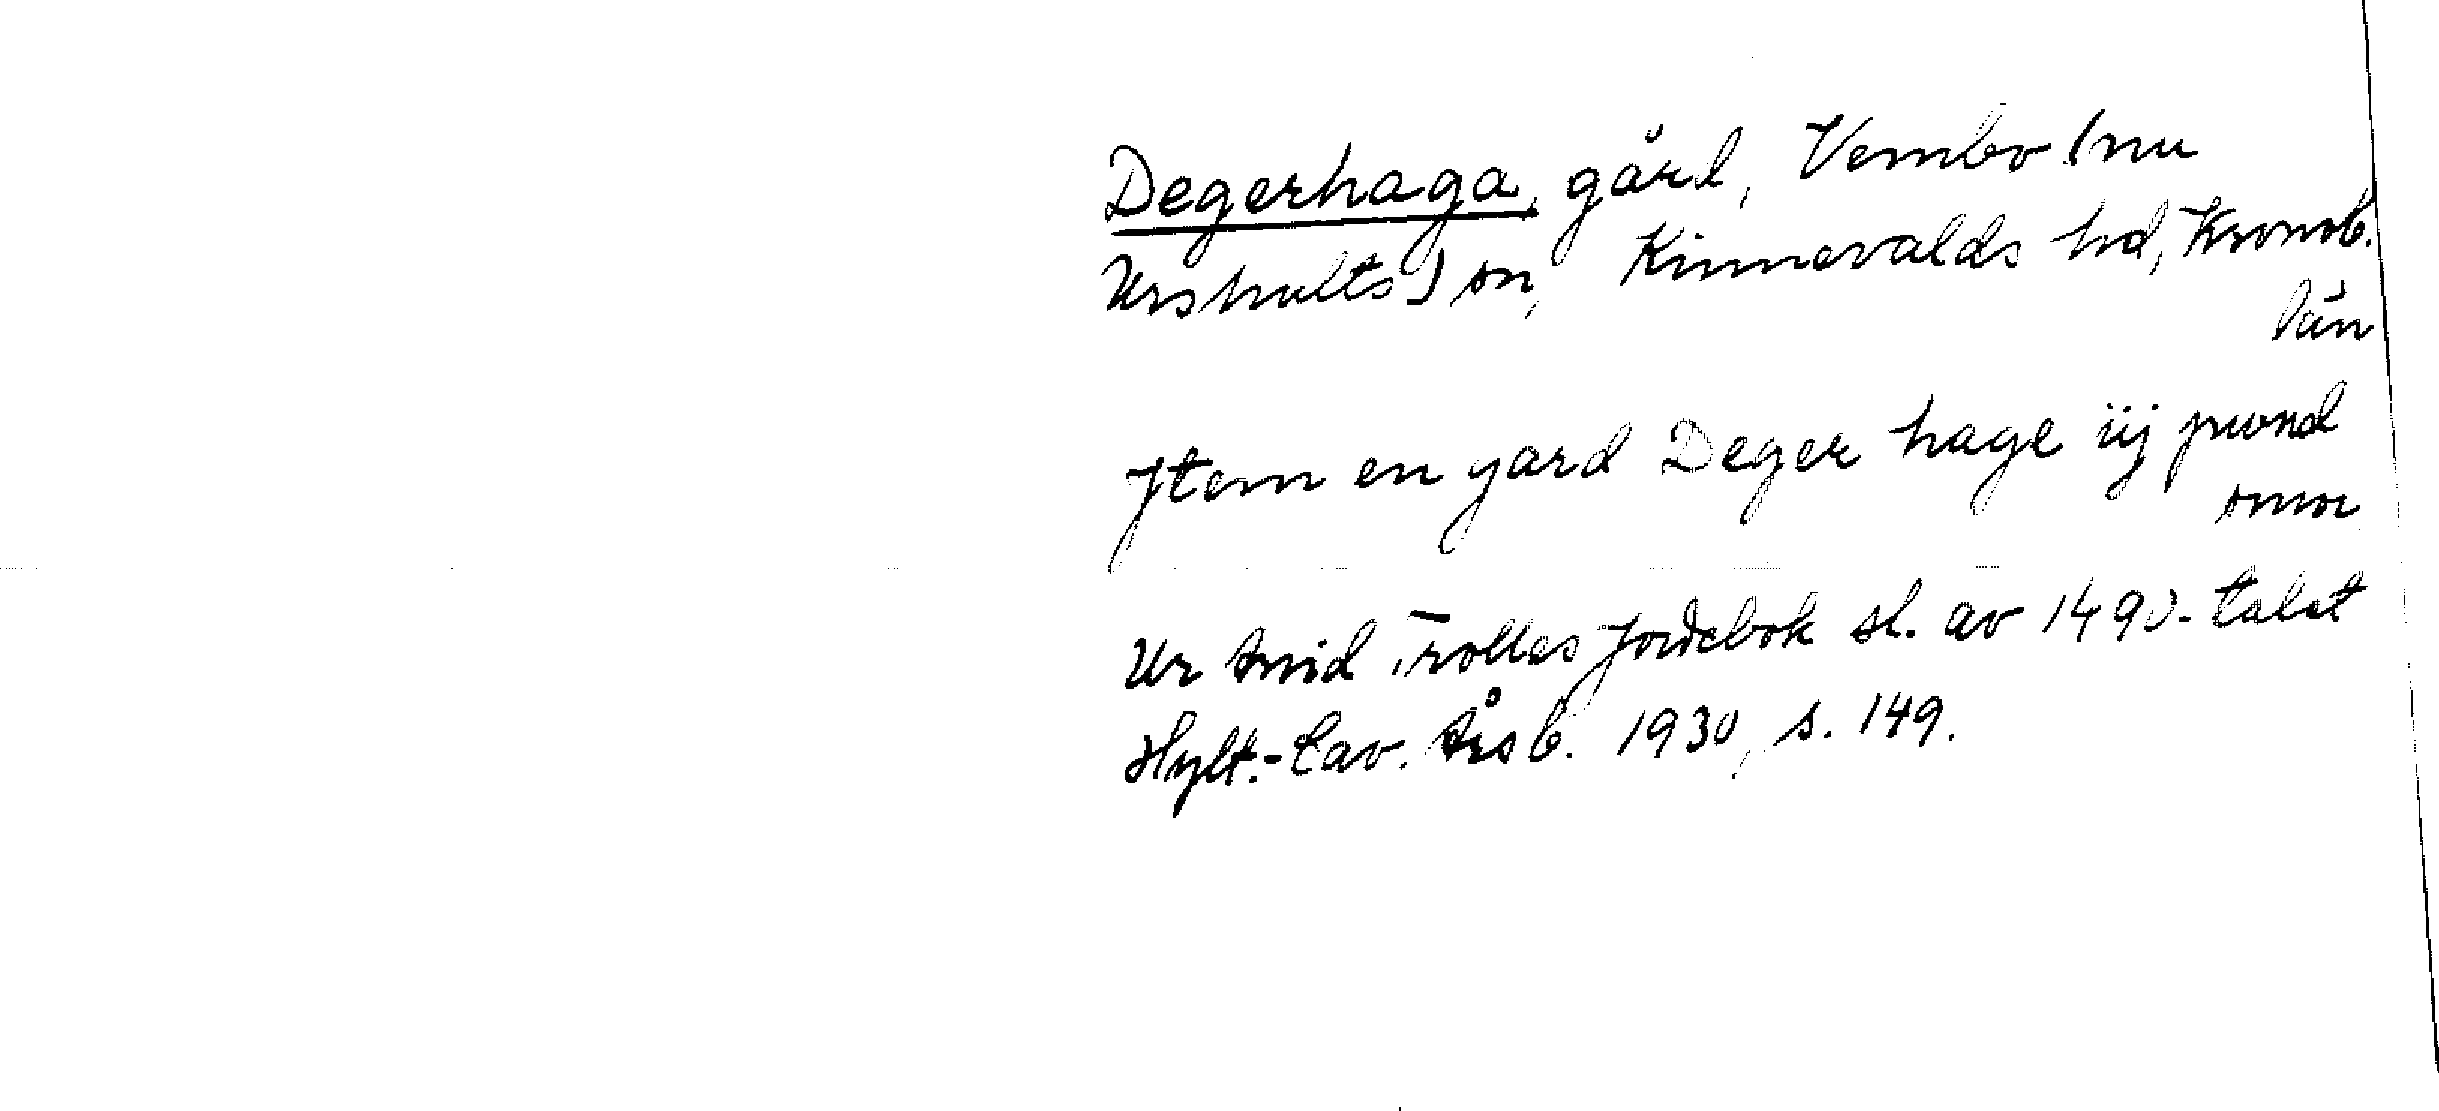 Degerhaga, gård, Vembo (nu
Urshults) sn, Kinnevalds hd, Kronob.
län
Jtem en gard Deger hage iij pwnd
smor
Ur Arvid Trolles Jordebok sl. av 1490-talet
Hylt.-Cav. Årsb. 1930, s. 149.